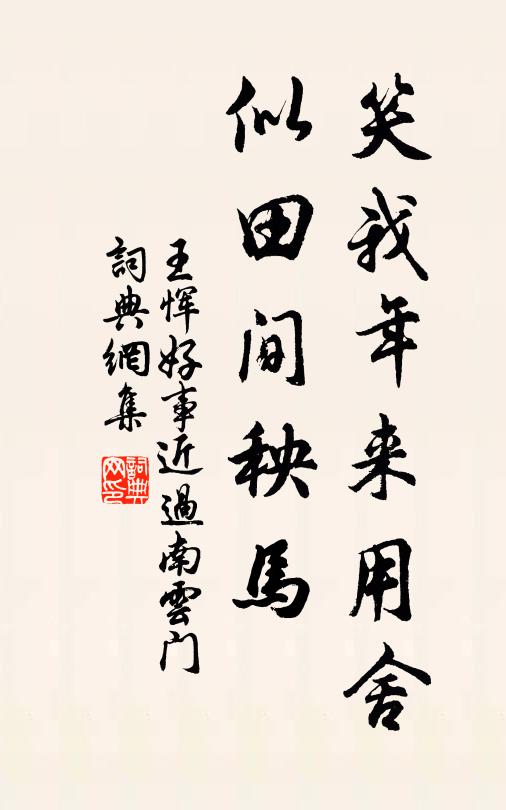 笑我年来用舍
似田间秧馬
王惲好事近過南雲门
詞典網集
詞典网印